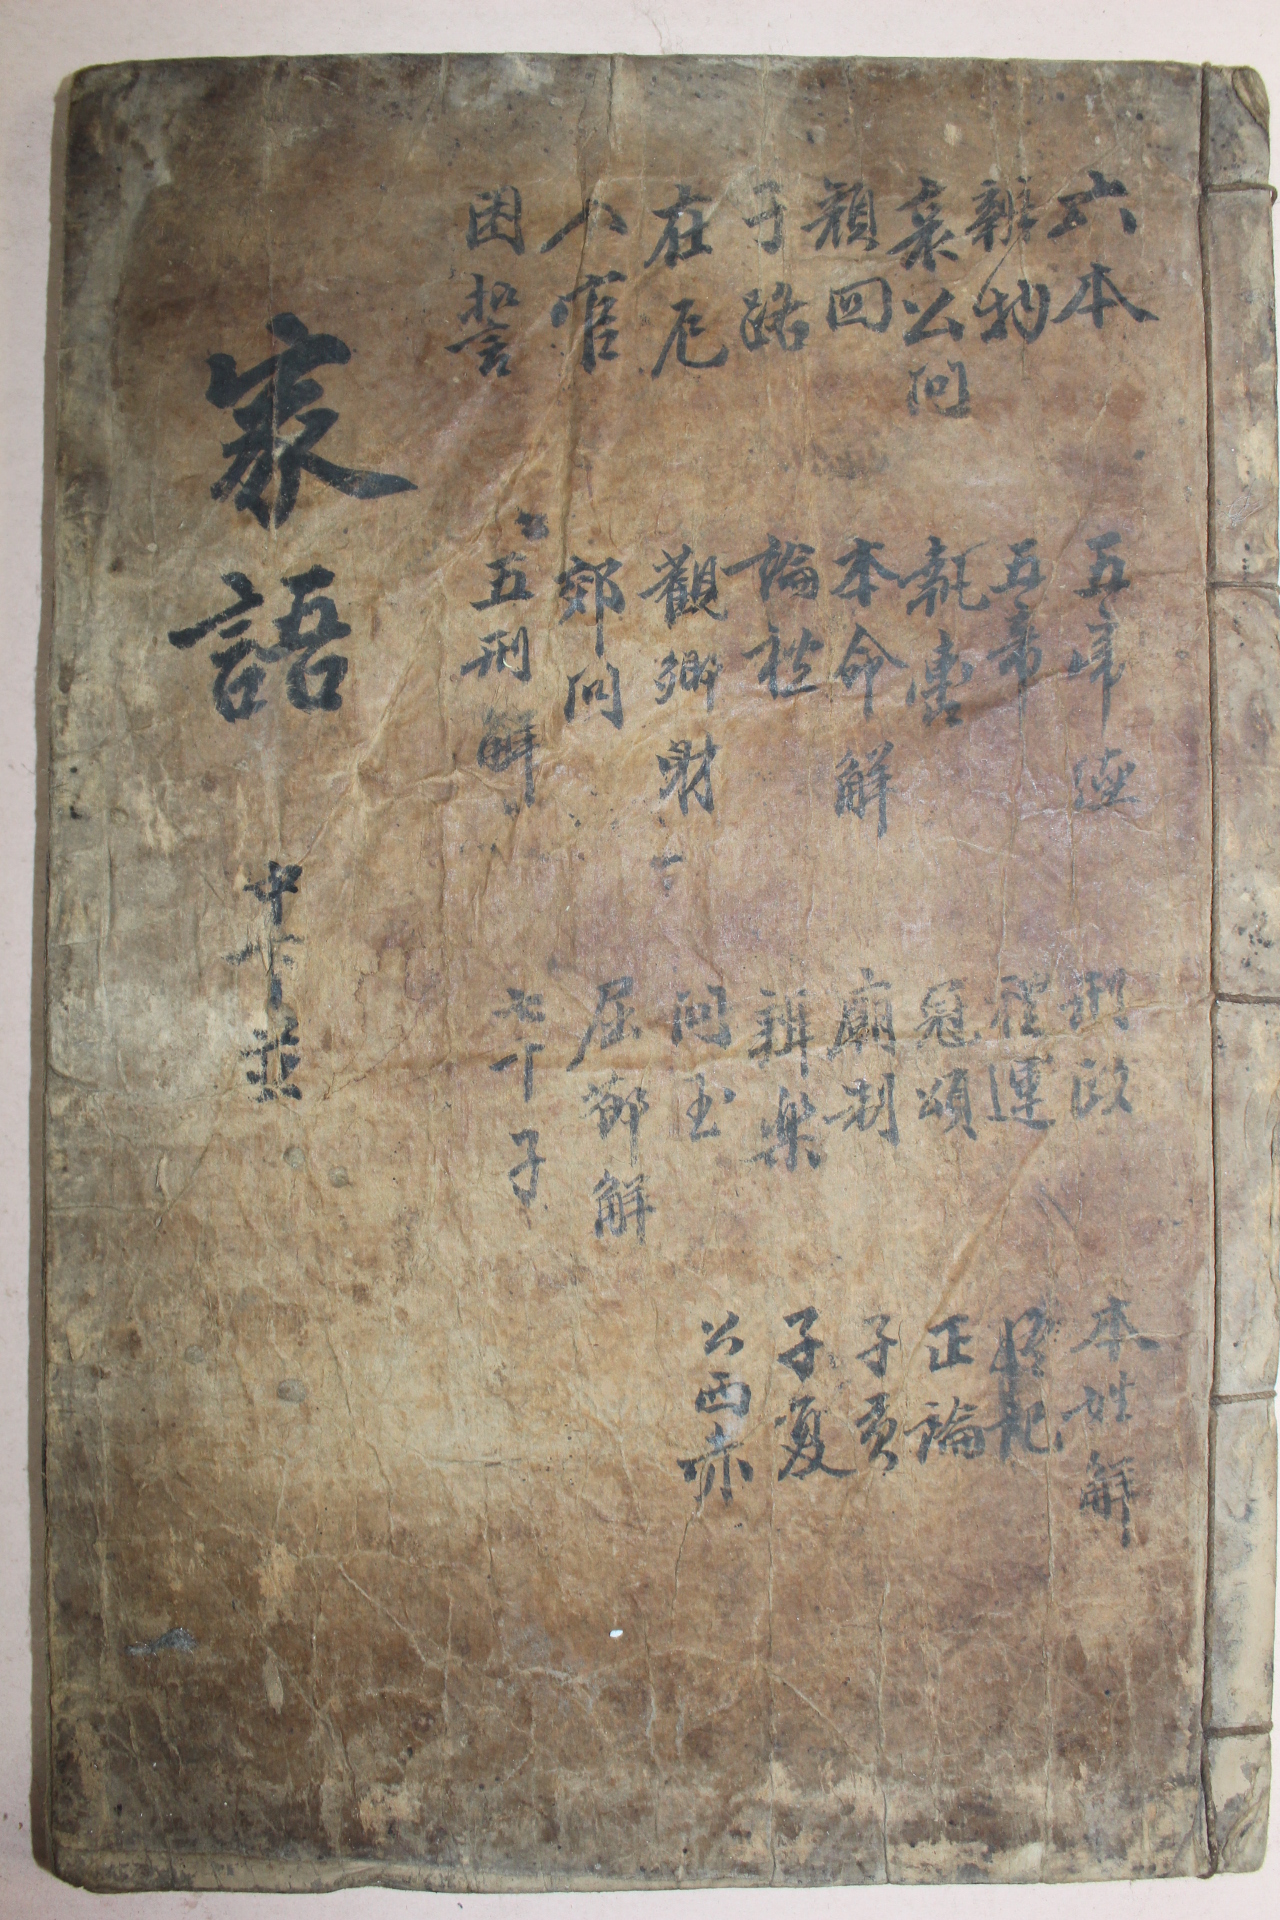 六本
辨物
哀公問
顔回
子路
在厄
入官
困誓
五帝德
五帝
執轡
本命解
論禮
觀鄉射
郊問
五刑解
刑政
禮運
冠頌
廟制
辯樂
問玉
屈節解
七十子
本姓解
終記
正論
子貢
子夏
公西赤
家語
中下並